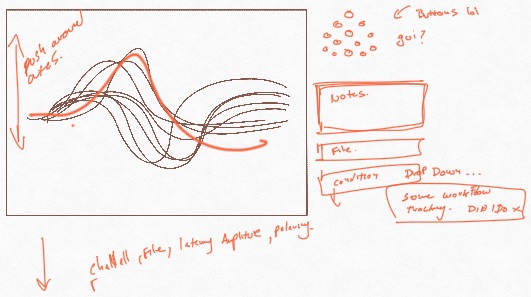 push around
axes.
Buttons lol
gui?
Notes.
File.
Condition Drop Down ...
Some workflow
tracking. Did I Do x
channel, File, latency Amplitude, polarity.